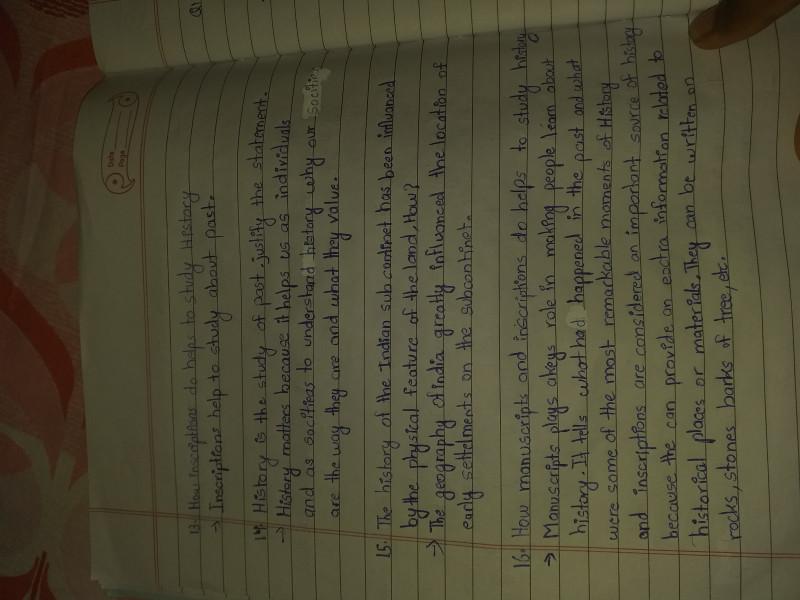 Date
Page
Q1
13. How inscriptions do helps to study History
→ Inscriptions help to study about past.
14. History is the study of past justify the statement.
→ History matters because it helps us as individuals
and as socitieas to understand history why our socities
are the way they are and what they value.
15. The history of the Indian subcontinet has been influanced
by the physical feature of the land, How?
→ The geography of india greatly influenced the location of
early settelments on the subcontinet.
16. How manuscripts and inscriptions do helps to study history
→ Manuscripts plays akeys role in making people learn about
history. It tells what had happened in the past and what
were some of the most remarkable moments of History
and inscriptions are considered an important source of history
because the can provide an eactra information related to
historical places or materials. They can be written on
rocks, stones barks of tree, etc.